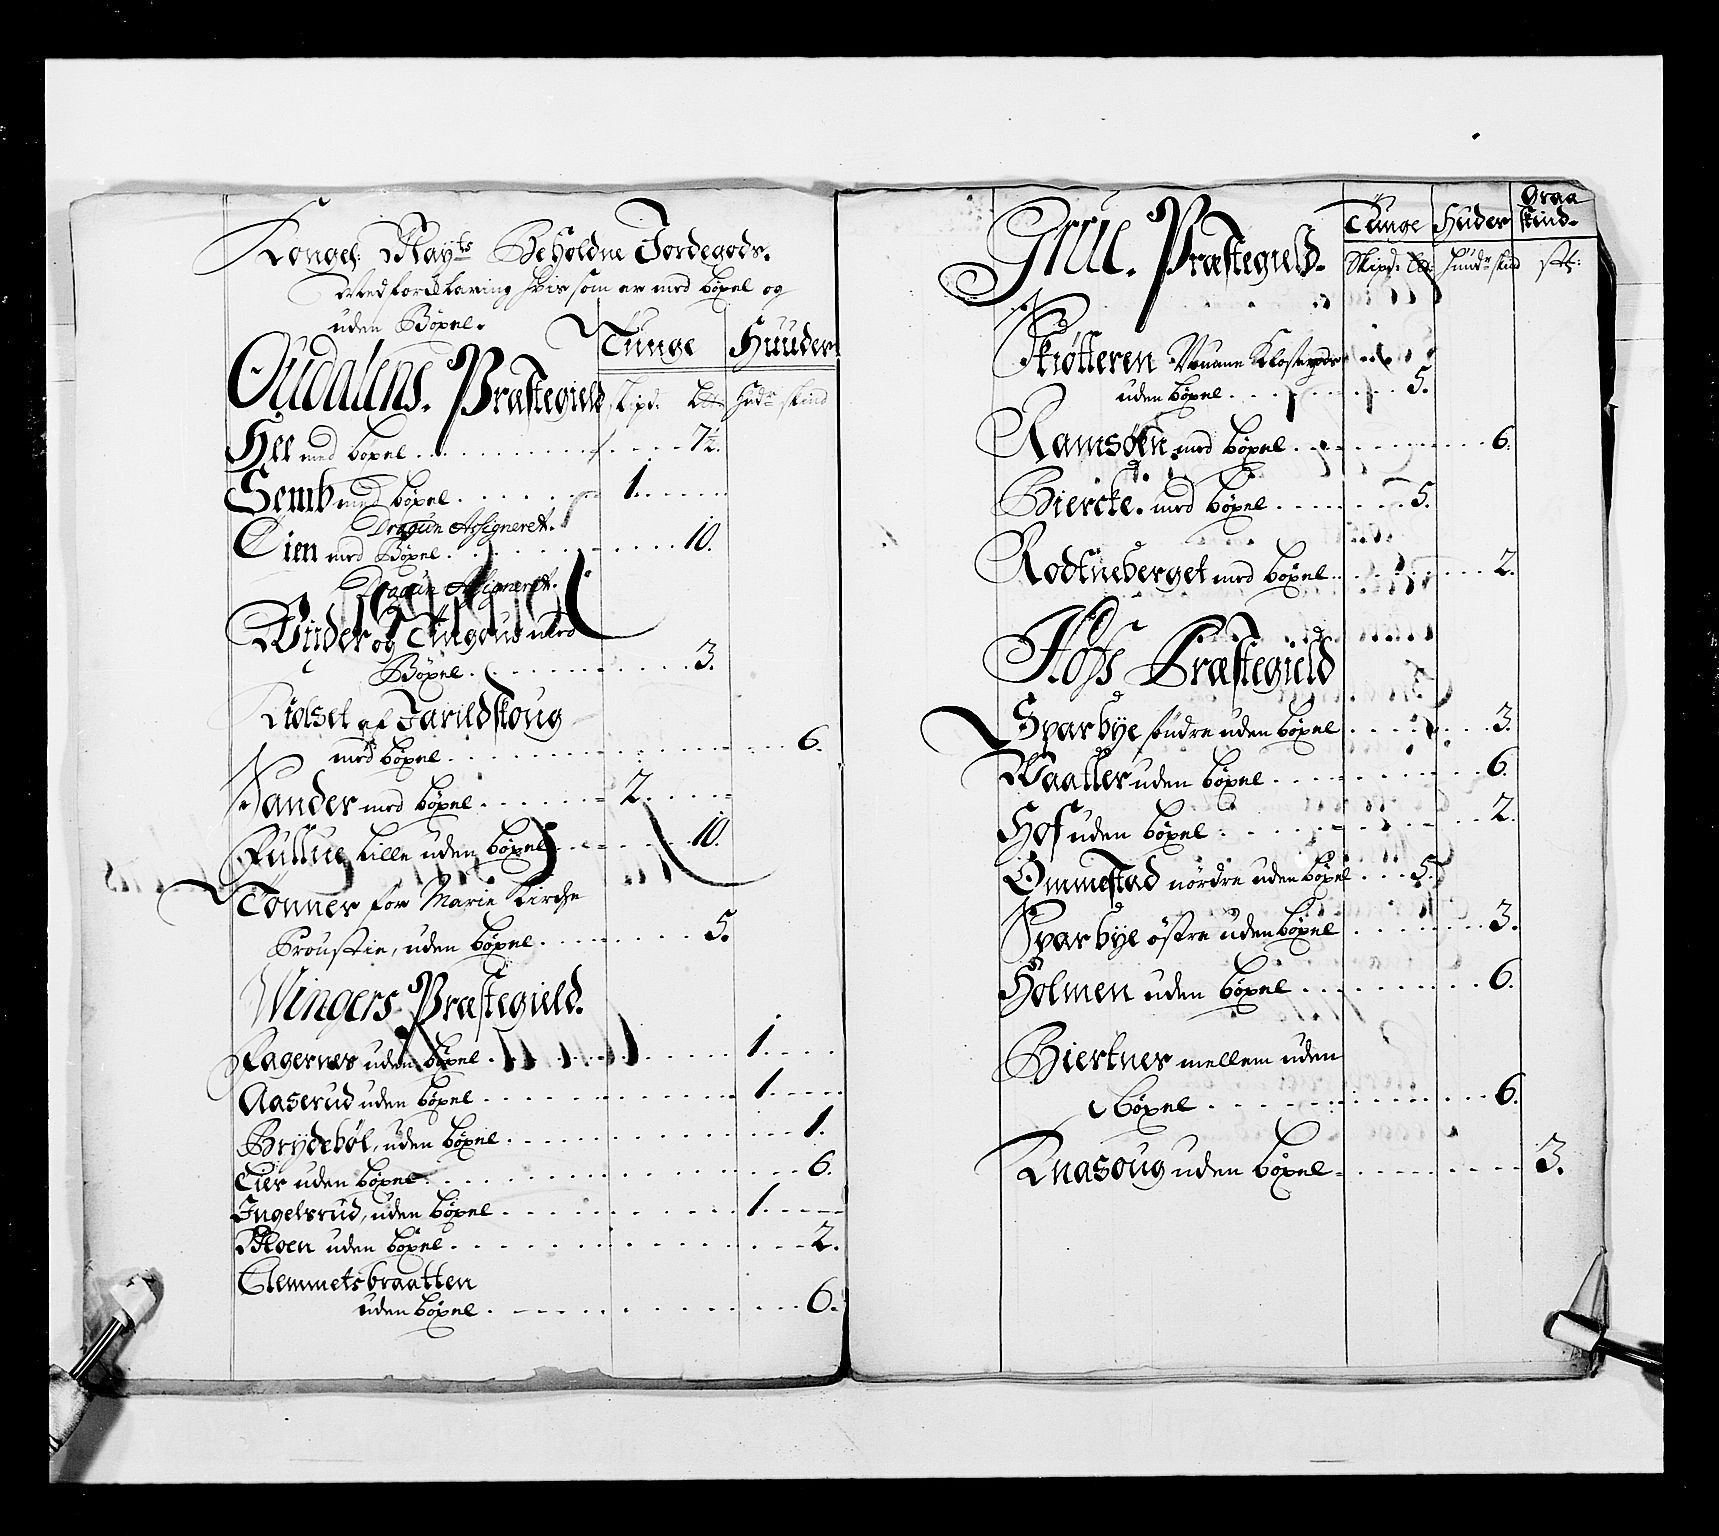 Kongel: Mayts Beholdne Jordegods.
Med forklaring hvis som er med bøxel og
uden Bøxel.
Tunge Huuder
Oudalens. Præstegield Skipd: Lis: Hudr skind
Hee med bøxel . . . . 7½.
Semb med bøxel . . . . 1. . . . .
Dragun Assigneret.
Eien med Bøxel . . . . 10.
Dragun Assigneret.
Winder og Tingoud med
Bøxel . . . . 3.
Kiølset af Jarildskoug
med bøxel . . . . 6.
Sander med bøxel . . . . 2. . . . .
Fulluc Lille uden bøxel . . . . 10.
Tønner for Marie Kirche
Proustie, uden bøxel . . . . 5.
Wingers Præstegield.
Ragernes uden bøxel . . . . 1. . . .
Aaserud uden bøxel . . . . 1. . . .
Brydebøl, uden bøxel . . . . 1.
Lier uden bøxel . . . . 6.
Ingelsrud, uden bøxel . . . . 1. . . .
Moen uden bøxel . . . . 2.
Clemmetsbraatten
uden bøxel . . . . 6.
Grue. Præstegield. Tunge Huder Graa skind.
Skipd: Lis: hundr skind stk:
Skiøtteren Klostergods
uden bøxel . . . . 5.
Ramsøen med bøxel . . . . 6.
Biercke. med bøxel . . . . 5.
Rodtneberget med bøxel . . . . 2.
Hofs Præstegield
Sparbye søndre uden bøxel . . . . 3.
Waaller uden bøxel . . . . 6.
Hof uden bøxel . . . . 2.
Ommestad nordre uden bøxel . . . 5.
Sparbye østre uden bøxel . . . . 3.
Holmen uden bøxel . . . . 6.
Biertnes mellem uden
bøxel . . . . 6.
Knasoug uden bøxel . . . . 3.